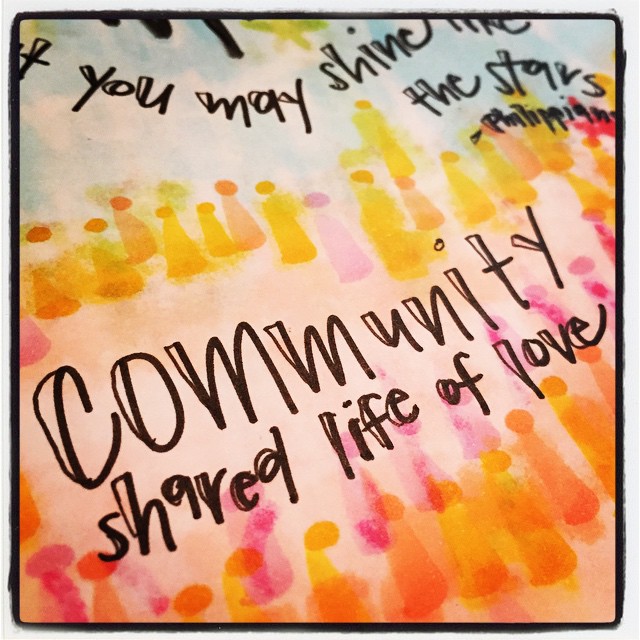 you may shine like
the stars
-Philippian
COMMUNITY
shared life of love